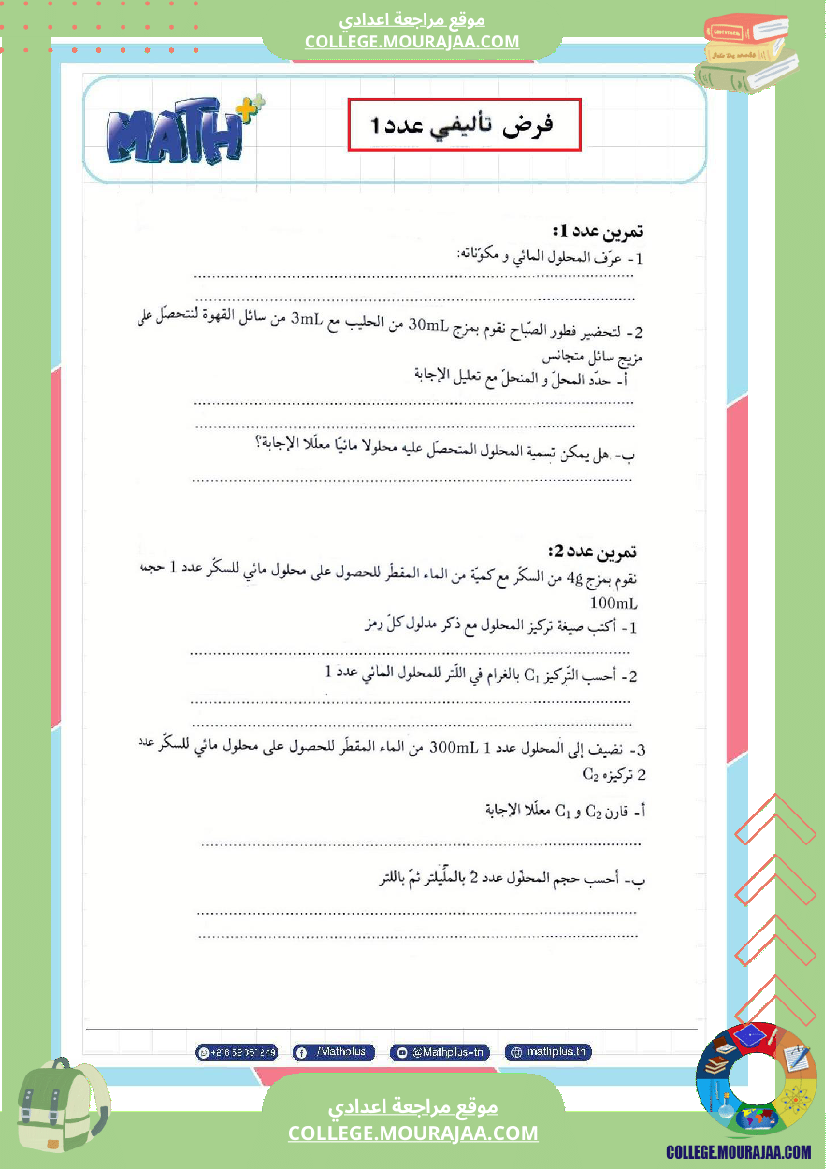 موقع مراجعة اعدادي
COLLEGE.MOURAJAA.COM
MATH+
فرض تأليفي عدد 1
تمرين عدد 1:
1- عرّف المحلول المائي و مكوّناته:
2- لتحضير فطور الصّباح نقوم بمزج 30mL من الحليب مع 3mL من سائل القهوة لنتحصّل على
مزيج سائل متجانس
أ- حدّد المحلّ و المنحلّ مع تعليل الإجابة
ب- هل يمكن تسمية المحلول المتحصّل عليه محلولا مائيّا معلّلا الإجابة؟
تمرين عدد 2:
نقوم بمزج 4g من السكّر مع كميّة من الماء المقطّر للحصول على محلول مائي للسكّر عدد 1 حجمه
100mL
1- أكتب صيغة تركيز المحلول مع ذكر مدلول كلّ رمز
2- أحسب التّركيز C₁ بالغرام في اللّتر للمحلول المائي عدد 1
3- نضيف إلى المحلول عدد 1 300mL من الماء المقطّر للحصول على محلول مائي للسكّر عدد
2 تركيزه C₂
أ- قارن C₂ و C₁ معلّلا الإجابة
ب- أحسب حجم المحلول عدد 2 بالملّيلتر ثمّ باللتر
/Mathplus
@Mathplus-tn
mathplus.tn
موقع مراجعة اعدادي
COLLEGE.MOURAJAA.COM
COLLEGE.MOURAJAA.COM